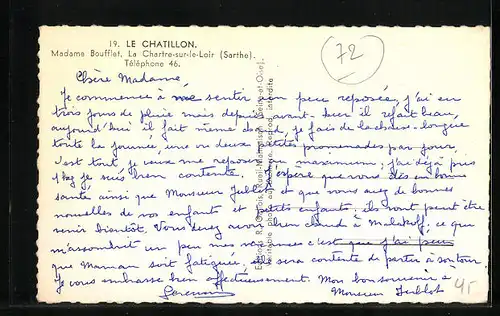 19. LE CHATILLON.
Madame Boufflet, La Chartre-sur-le-Loir (Sarthe).
Téléphone 46.
72
Chère Madame
Je commence à me sentir un peu reposée, j'ai eu
trois jours de pluie mais depuis avant-hier il refait beau,
aujourd'hui il fait même chaud, je fais de la chaise-longue
toute la journée, une ou deux petites promenades par jour,
c'est tout, je veux me reposer au maximum; j'ai déjà pris
je suis bien contente. J'espère que vous êtes en bonne
santé ainsi que Monsieur et que vous avez de bonnes
nouvelles de vos enfants et petits enfants, ils vont peut être
venir bientôt. Vous devez avoir bien chaud à Malakoff, ce que
m'assombrit un peu mes vacances c'est que j'ai peur
que Maman soit fatiguée, elle sera contente de partir à son tour
Je vous embrasse bien affectueusement. Mon bon souvenir à
Monsieur
Editions R. Rueil-Malmaison (Seine-et-Oise).
Véritable photo au bromure. Reprod. interdite